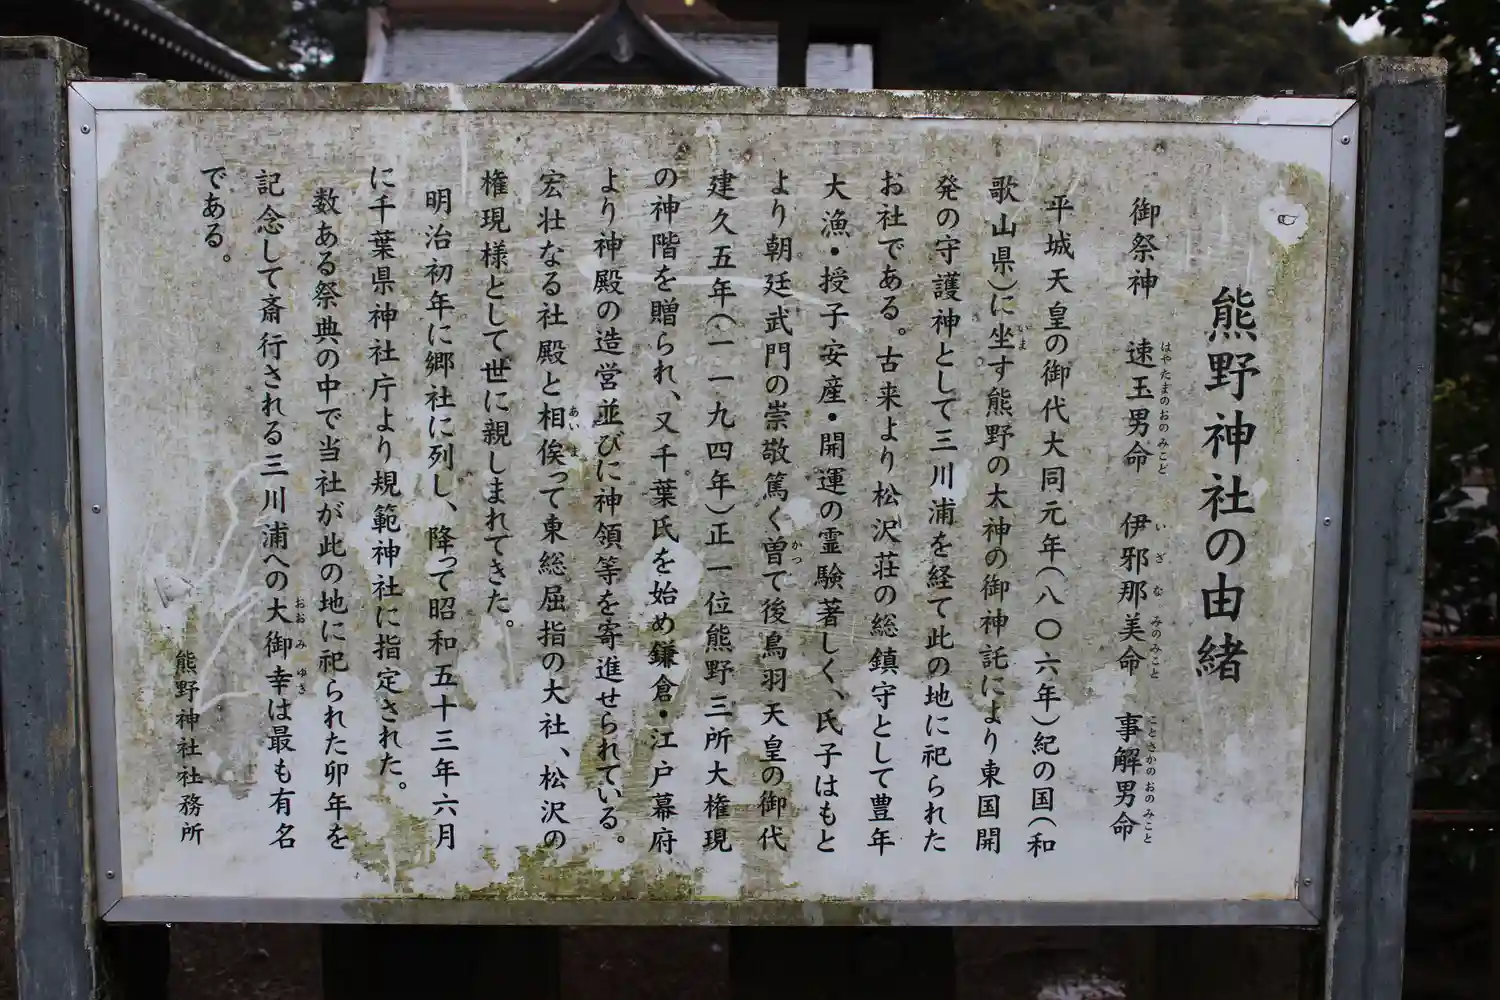 熊野神社の由緒
御祭神　速玉男命　伊邪那美命　事解男命
はやたまのおのみこと　いざなみのみこと　ことさかのおのみこと
平城天皇の御代大同元年(八〇六年)紀の国(和
歌山県)に坐す熊野の大神の御神託により東国開
いま
発の守護神として三川浦を経て此の地に祀られた
お社である。古来より松沢荘の総鎮守として豊年
大漁・授子安産・開運の霊験著しく、氏子はもと
より朝廷武門の崇敬篤く曽て後鳥羽天皇の御代
かつ
建久五年(一一九四年)正一位熊野三所大権現
の神階を贈られ、又千葉氏を始め鎌倉・江戸幕府
より神殿の造営並びに神領等を寄進せられている。
宏壮なる社殿と相俟って東総屈指の大社、松沢の
あいま
権現様として世に親しまれてきた。
明治初年に郷社に列し、降って昭和五十三年六月
に千葉県神社庁より規範神社に指定された。
数ある祭典の中で当社が此の地に祀られた卯年を
記念して斎行される三川浦への大御幸は最も有名
おおみゆき
である。
熊野神社社務所